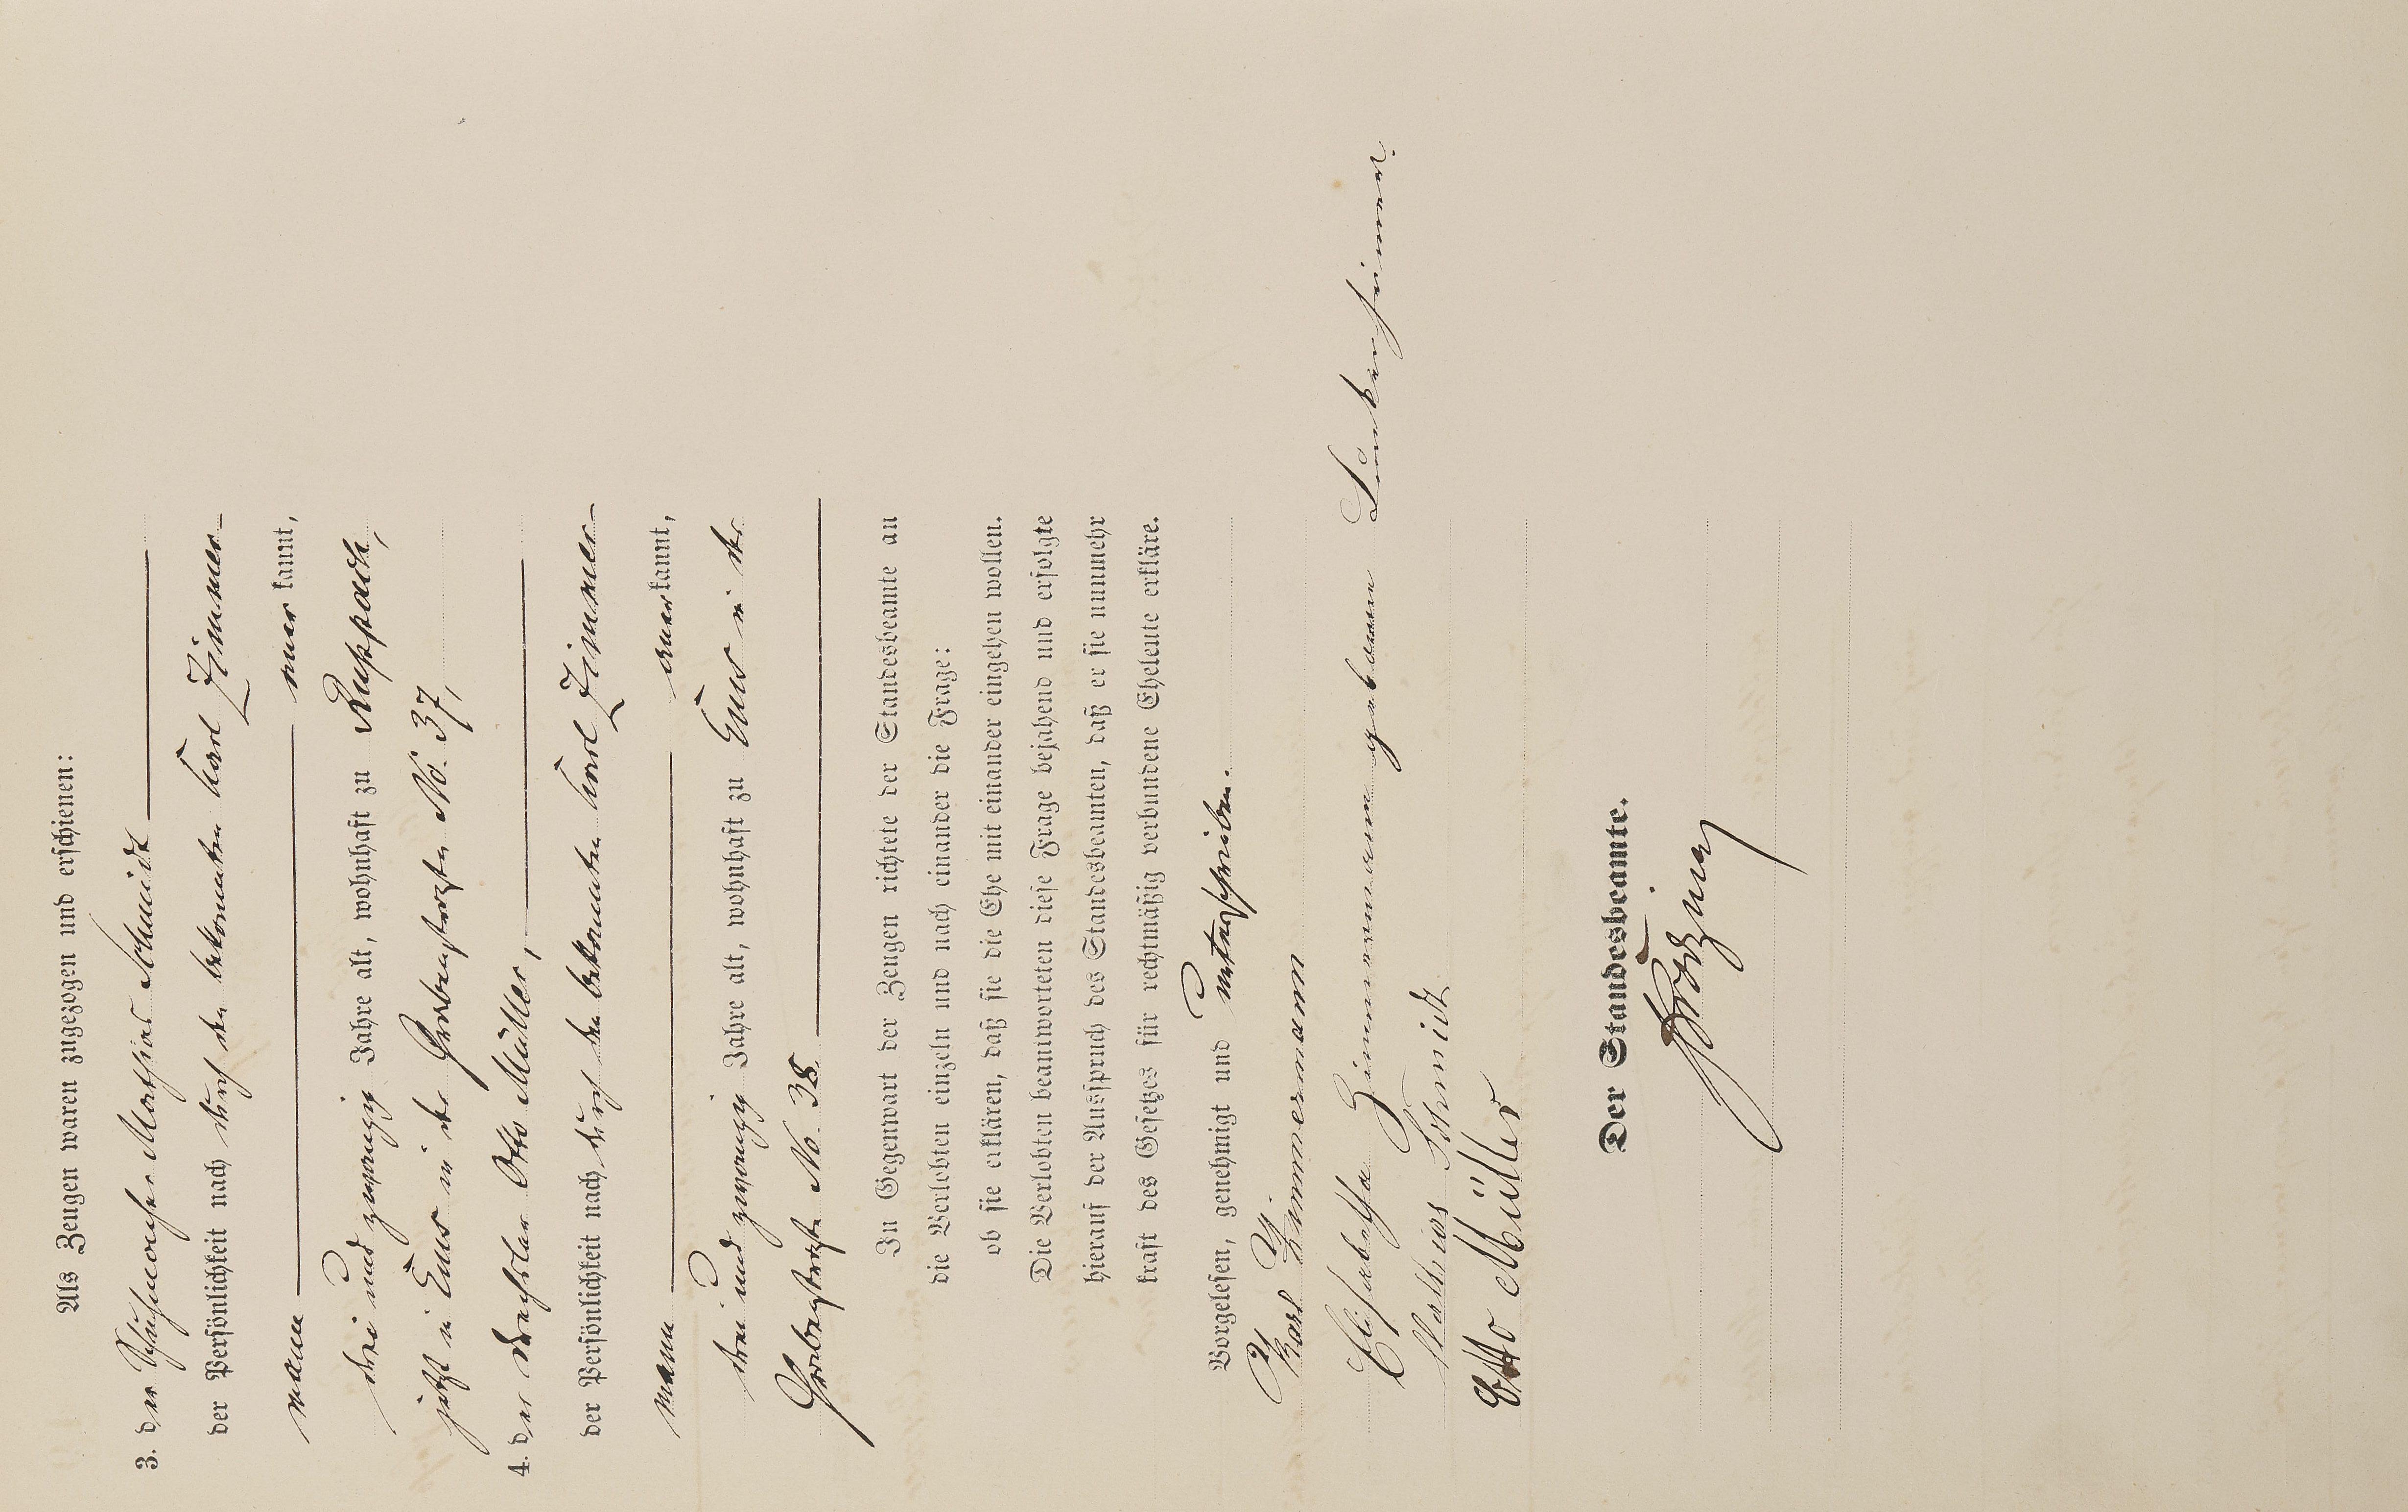 Als Zeugen waren zugezogen und erschienen:
3. der Schuhmacher Mathias Schmidt
der Persönlichkeit nach durch den bekannten Karl Zimmer-
mann anerkannt,
drei und zwanzig Jahre alt, wohnhaft zu Ruppach,
jetzt in Ems in der Grabenstraße No. 37,
4. der Drechsler Otto Müller,
der Persönlichkeit nach durch den bekannten Karl Zimmer-
mann anerkannt,
drei und zwanzig Jahre alt, wohnhaft zu Ems in der
Grabenstraße No. 38.
In Gegenwart der Zeugen richtete der Standesbeamte an
die Verlobten einzeln und nach einander die Frage:
ob sie erklären, daß sie die Ehe mit einander eingehen wollen.
Die Verlobten beantworteten diese Frage bejahend und erfolgte
hierauf der Ausspruch des Standesbeamten, daß er sie nunmehr
kraft des Gesetzes für rechtmäßig verbundene Eheleute erkläre.
Vorgelesen, genehmigt und unterschrieben.
Karl Zimmermann
Elisabetha Zimmermann geborene
Mathias Schmidt
Otto Müller
Der Standesbeamte.